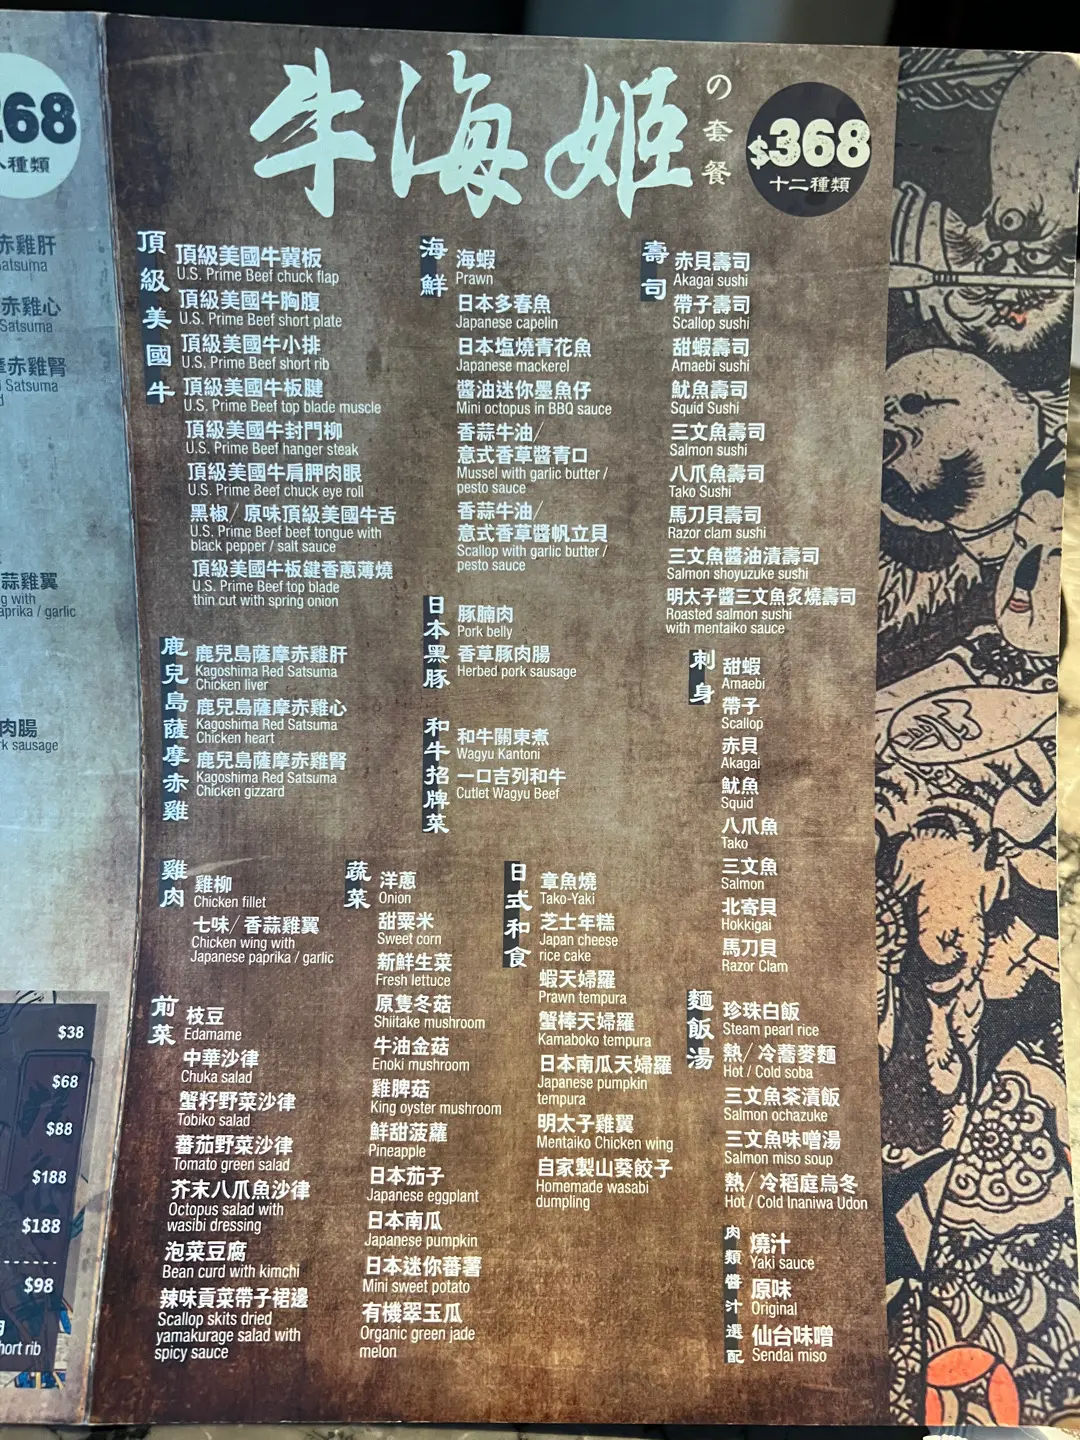 268
種類
赤雞肝
atsuma
赤雞心
Satsuma
摩赤雞腎
Satsuma
d
蒜雞翼
g with
aprika / garlic
肉腸
rk sausage
$38
$68
$88
$188
$188
$98
hort rib
牛海姬
の套餐
$368
十二種類
頂級美國牛
頂級美國牛冀板
U.S. Prime Beef chuck flap
頂級美國牛胸腹
U.S. Prime Beef short plate
頂級美國牛小排
U.S. Prime Beef short rib
頂級美國牛板腱
U.S. Prime Beef top blade muscle
頂級美國牛封門柳
U.S. Prime Beef hanger steak
頂級美國牛肩胛肉眼
U.S. Prime Beef chuck eye roll
黑椒/ 原味頂級美國牛舌
U.S. Prime Beef beef tongue with
black pepper / salt sauce
頂級美國牛板鍵香蔥薄燒
U.S. Prime Beef top blade
thin cut with spring onion
鹿兒島薩摩赤雞
鹿兒島薩摩赤雞肝
Kagoshima Red Satsuma
Chicken liver
鹿兒島薩摩赤雞心
Kagoshima Red Satsuma
Chicken heart
鹿兒島薩摩赤雞腎
Kagoshima Red Satsuma
Chicken gizzard
雞肉
雞柳
Chicken fillet
七味/ 香蒜雞翼
Chicken wing with
Japanese paprika / garlic
前菜
枝豆
Edamame
中華沙律
Chuka salad
蟹籽野菜沙律
Tobiko salad
蕃茄野菜沙律
Tomato green salad
芥末八爪魚沙律
Octopus salad with
wasibi dressing
泡菜豆腐
Bean curd with kimchi
辣味貢菜帶子裙邊
Scallop skits dried
yamakurage salad with
spicy sauce
海鮮
海蝦
Prawn
日本多春魚
Japanese capelin
日本塩燒青花魚
Japanese mackerel
醬油迷你墨魚仔
Mini octopus in BBQ sauce
香蒜牛油/
意式香草醬青口
Mussel with garlic butter /
pesto sauce
香蒜牛油/
意式香草醬帆立貝
Scallop with garlic butter /
pesto sauce
日本黑豚
豚腩肉
Pork belly
香草豚肉腸
Herbed pork sausage
和牛招牌菜
和牛關東煮
Wagyu Kantoni
一口吉列和牛
Cutlet Wagyu Beef
蔬菜
洋蔥
Onion
甜粟米
Sweet corn
新鮮生菜
Fresh lettuce
原隻冬菇
Shiitake mushroom
牛油金菇
Enoki mushroom
雞脾菇
King oyster mushroom
鮮甜菠蘿
Pineapple
日本茄子
Japanese eggplant
日本南瓜
Japanese pumpkin
日本迷你蕃薯
Mini sweet potato
有機翠玉瓜
Organic green jade
melon
日式和食
章魚燒
Tako-Yaki
芝士年糕
Japan cheese
rice cake
蝦天婦羅
Prawn tempura
蟹棒天婦羅
Kamaboko tempura
日本南瓜天婦羅
Japanese pumpkin
tempura
明太子雞翼
Mentaiko Chicken wing
自家製山葵餃子
Homemade wasabi
dumpling
壽司
赤貝壽司
Akagai sushi
帶子壽司
Scallop sushi
甜蝦壽司
Amaebi sushi
魷魚壽司
Squid Sushi
三文魚壽司
Salmon sushi
八爪魚壽司
Tako Sushi
馬刀貝壽司
Razor clam sushi
三文魚醬油漬壽司
Salmon shoyuzuke sushi
明太子醬三文魚炙燒壽司
Roasted salmon sushi
with mentaiko sauce
刺身
甜蝦
Amaebi
帶子
Scallop
赤貝
Akagai
魷魚
Squid
八爪魚
Tako
三文魚
Salmon
北寄貝
Hokkigai
馬刀貝
Razor Clam
麵飯湯
珍珠白飯
Steam pearl rice
熱/ 冷蕎麥麵
Hot / Cold soba
三文魚茶漬飯
Salmon ochazuke
三文魚味噌湯
Salmon miso soup
熱/ 冷稻庭烏冬
Hot / Cold Inaniwa Udon
肉類醬汁選配
燒汁
Yaki sauce
原味
Original
仙台味噌
Sendai miso